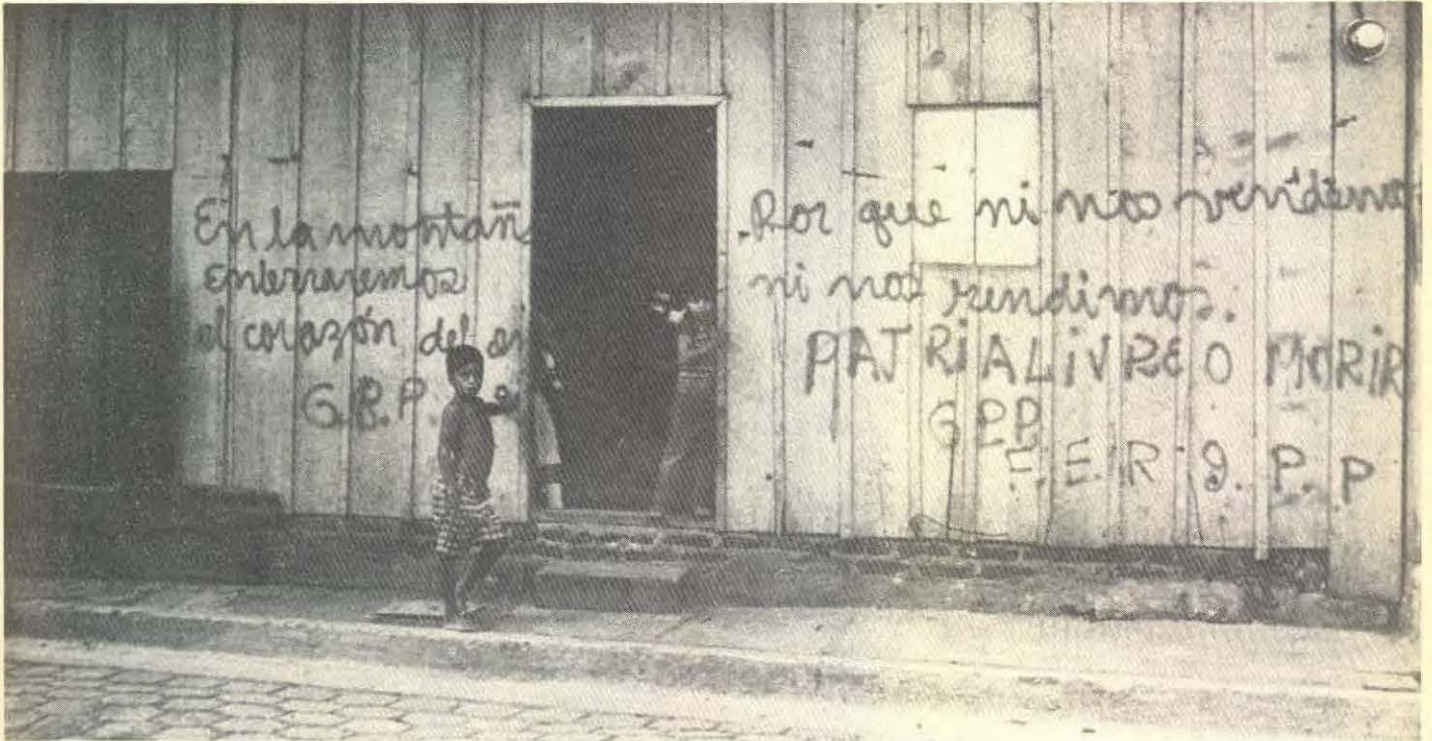 En la montañ
enterraremos
el corazón del
G.P.P.
Por que ni nos vendemos
ni nos rendimos.
PATRIA LiVRE O MORIR
GPP
F.E.R. G.P.P